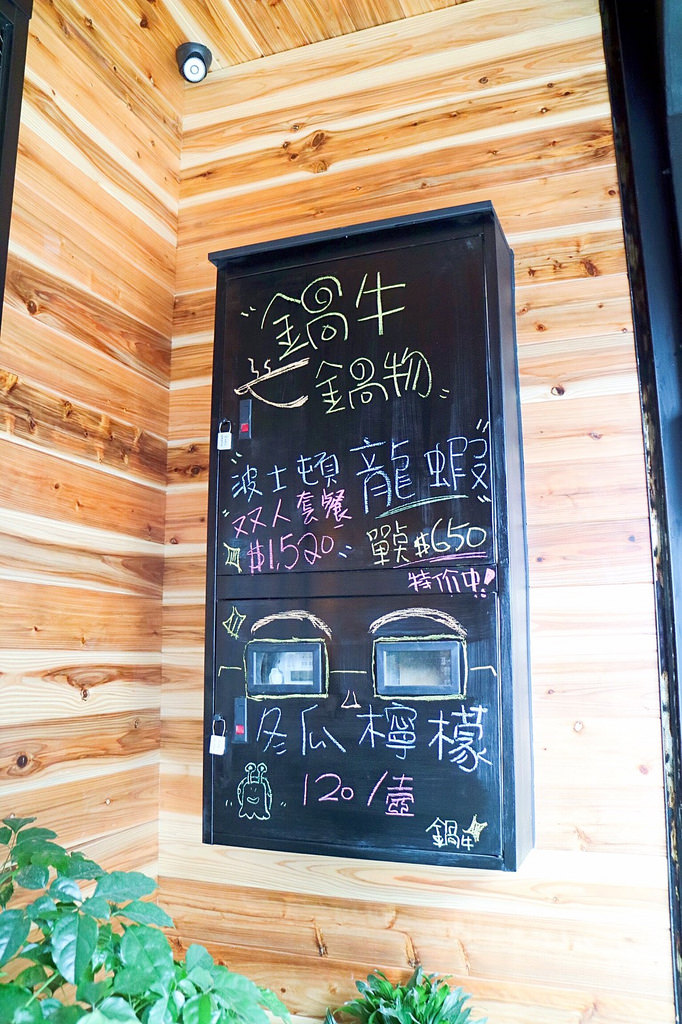 鍋牛
鍋物
波士頓
龍蝦
双人套餐
$1,520
單点$650
特价中!
冬瓜檸檬
120/壺
鍋牛